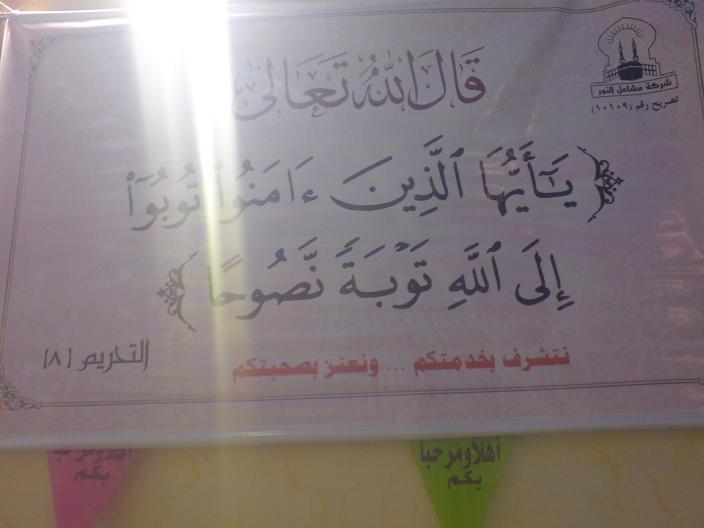 شركة مشاعل النور
تصريح رقم (١٠١٠٩)
قَالَ اللهُ تَعَالَى
﴿ يَـٰٓأَيُّهَا ٱلَّذِينَ ءَامَنُوا۟ تُوبُوٓا۟
إِلَى ٱللَّهِ تَوْبَةً نَّصُوحًا ﴾
التحريم [٨]
نتشرف بخدمتكم ... ونعتز بصحبتكم
أهلا ومرحبا
بكم
أهلا ومرحبا
بكم